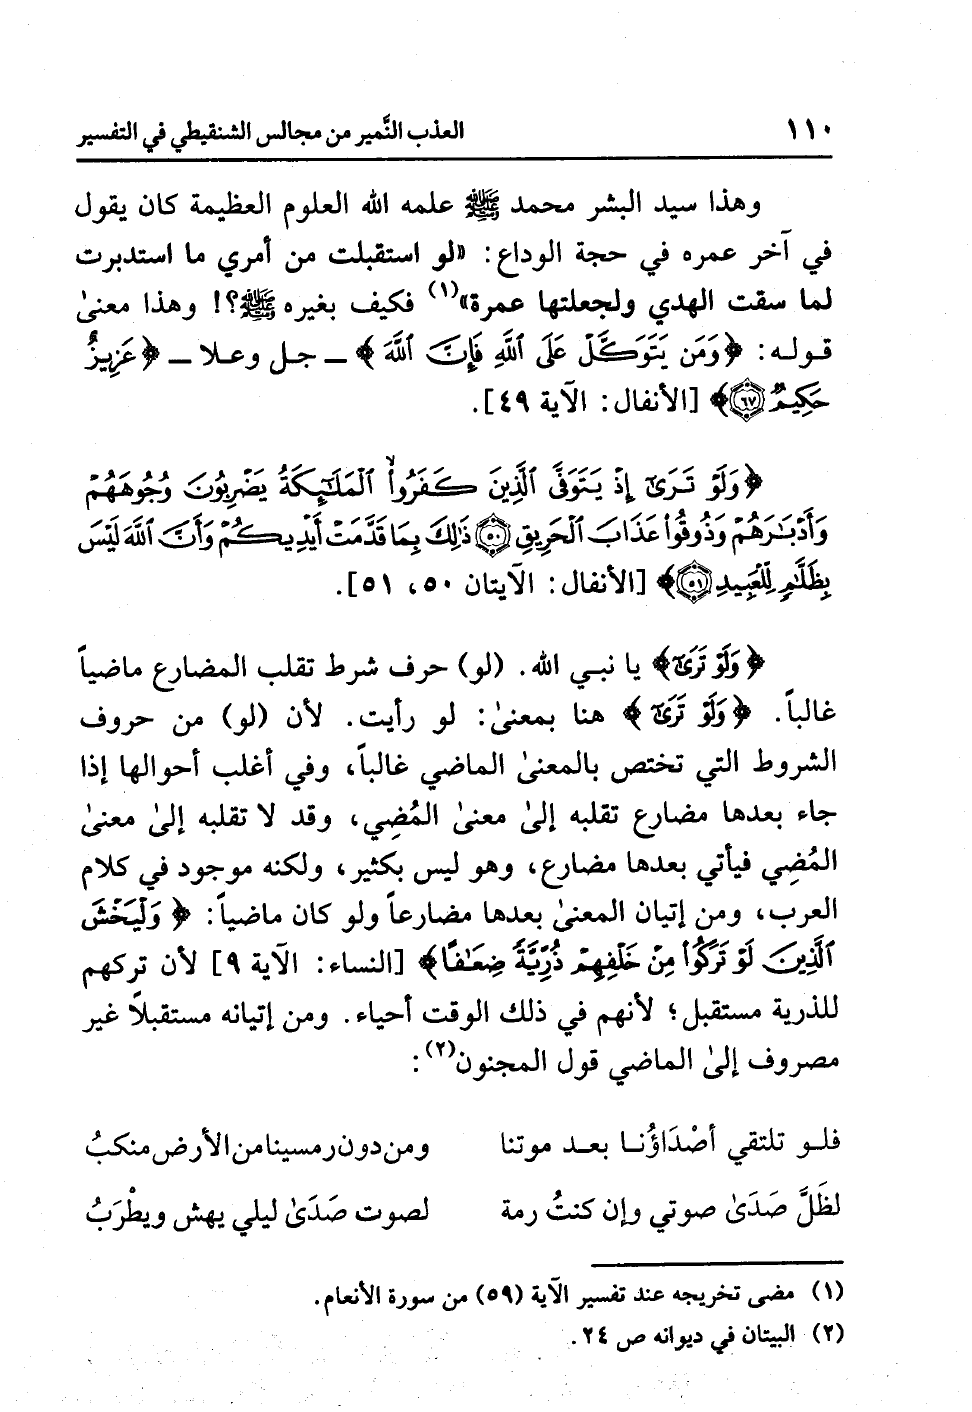 ١١٠ العذب النَّمير من مجالس الشنقيطي في التفسير
وهذا سيد البشر محمد ﷺ علمه الله العلوم العظيمة كان يقول
في آخر عمره في حجة الوداع: «لو استقبلت من أمري ما استدبرت
لما سقت الهدي ولجعلتها عمرة»(١) فكيف بغيره ﷺ؟! وهذا معنىٰ
قوله: ﴿وَمَن يَتَوَكَّلْ عَلَى ٱللَّهِ فَإِنَّ ٱللَّهَ﴾ ــ جل وعلا ــ ﴿عَزِيزٌ
حَكِيمٌ ٦٧﴾ [الأنفال: الآية ٤٩].
﴿وَلَوْ تَرَىٰٓ إِذْ يَتَوَفَّى ٱلَّذِينَ كَفَرُوا۟ ۙ ٱلْمَلَٰٓئِكَةُ يَضْرِبُونَ وُجُوهَهُمْ
وَأَدْبَٰرَهُمْ وَذُوقُوا۟ عَذَابَ ٱلْحَرِيقِ ٥٠ ذَٰلِكَ بِمَا قَدَّمَتْ أَيْدِيكُمْ وَأَنَّ ٱللَّهَ لَيْسَ
بِظَلَّٰمٍ لِّلْعَبِيدِ ٥١﴾ [الأنفال: الآيتان ٥٠، ٥١].
﴿وَلَوْ تَرَىٰٓ﴾ يا نبي الله. (لو) حرف شرط تقلب المضارع ماضياً
غالباً. ﴿وَلَوْ تَرَىٰٓ﴾ هنا بمعنىٰ: لو رأيت. لأن (لو) من حروف
الشروط التي تختص بالمعنىٰ الماضي غالباً، وفي أغلب أحوالها إذا
جاء بعدها مضارع تقلبه إلىٰ معنىٰ المُضِي، وقد لا تقلبه إلىٰ معنىٰ
المُضِي فيأتي بعدها مضارع، وهو ليس بكثير، ولكنه موجود في كلام
العرب، ومن إتيان المعنىٰ بعدها مضارعاً ولو كان ماضياً: ﴿وَلْيَخْشَ
ٱلَّذِينَ لَوْ تَرَكُوا۟ مِنْ خَلْفِهِمْ ذُرِّيَّةً ضِعَٰفًا﴾ [النساء: الآية ٩] لأن تركهم
للذرية مستقبل؛ لأنهم في ذلك الوقت أحياء. ومن إتيانه مستقبلاً غير
مصروف إلىٰ الماضي قول المجنون(٢):
فلو تلتقي أصْدَاؤُنا بعد موتنا ومن دون رمسينا من الأرض منكبُ
لظَلَّ صَدَىٰ صوتي وإن كنتُ رمة لصوت صَدَىٰ ليلي يهش ويطْرَبُ
(١) مضى تخريجه عند تفسير الآية (٥٩) من سورة الأنعام.
(٢) البيتان في ديوانه ص ٢٤.